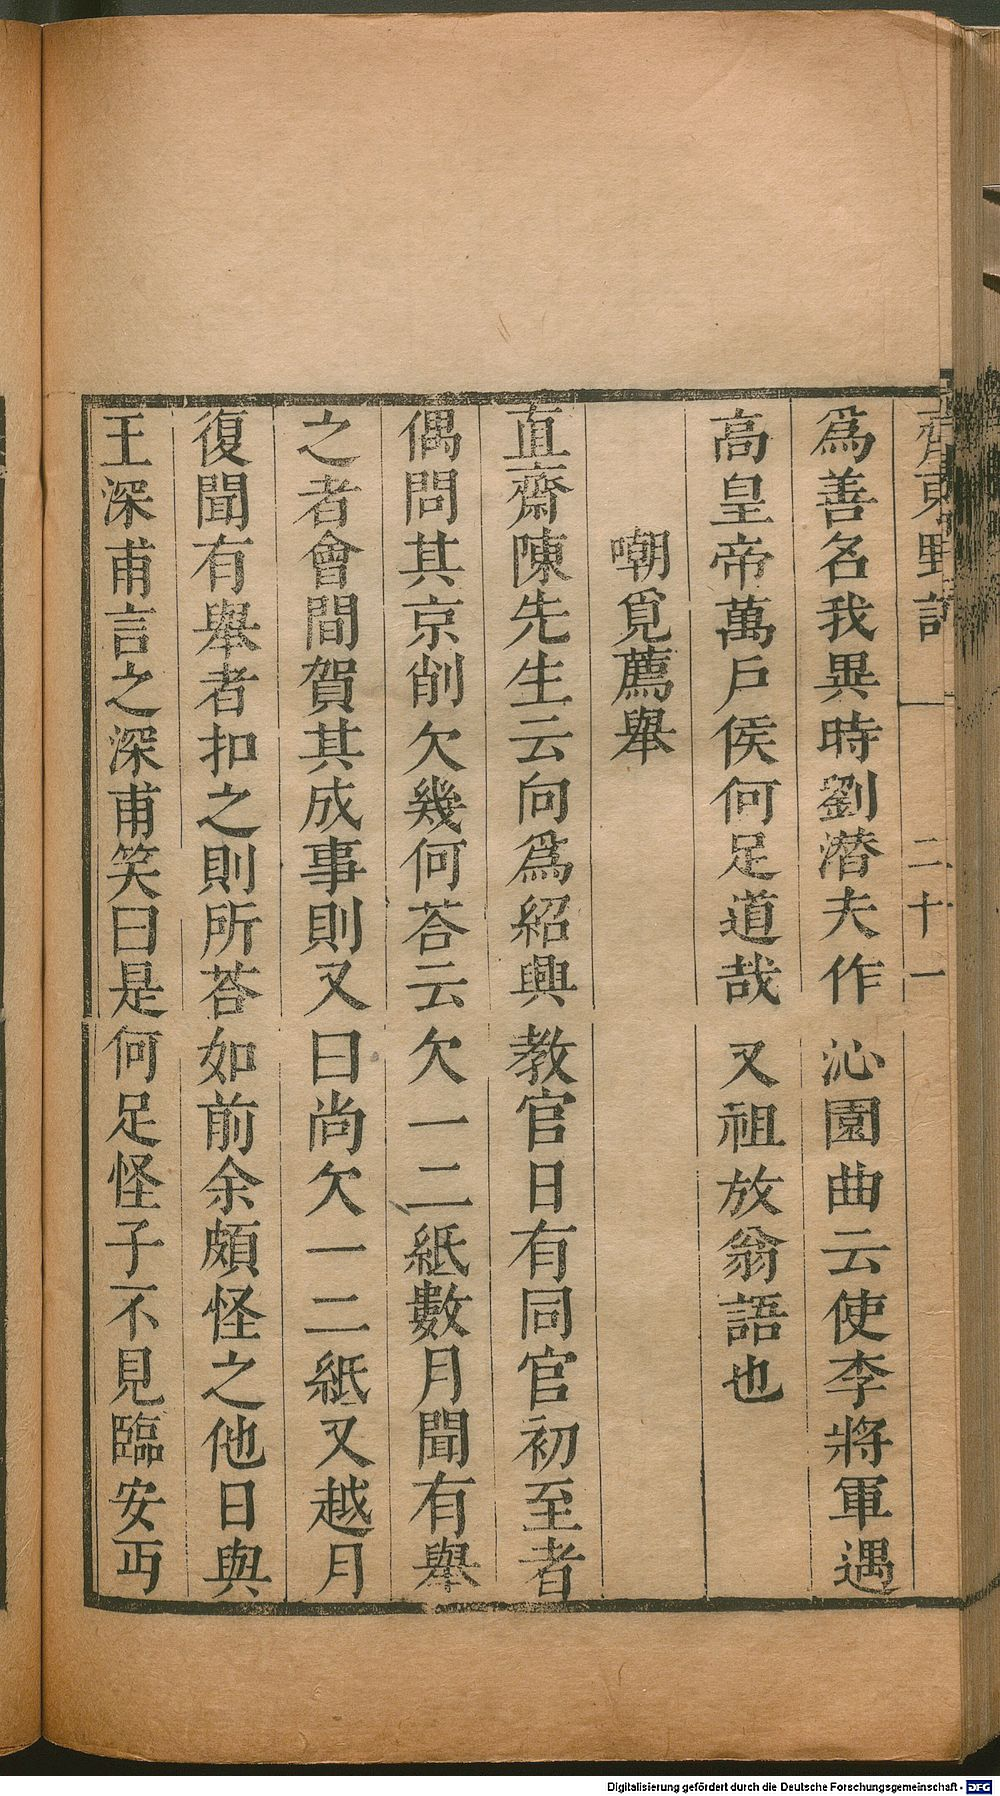 齊東野語 二十一
爲善名我異時劉潛夫作沁園曲云使李將軍遇
高皇帝萬戶侯何足道哉又祖放翁語也
嘲覓薦舉
直齋陳先生云向爲紹興教官日有同官初至者
偶問其京削欠幾何荅云欠一二紙數月聞有舉
之者會間賀其成事則又曰尚欠一二紙又越月
復聞有舉者扣之則所荅如前余頗怪之他日與
王深甫言之深甫笑曰是何足怪子不見臨安丐
Digitalisierung gefördert durch die Deutsche Forschungsgemeinschaft - DFG